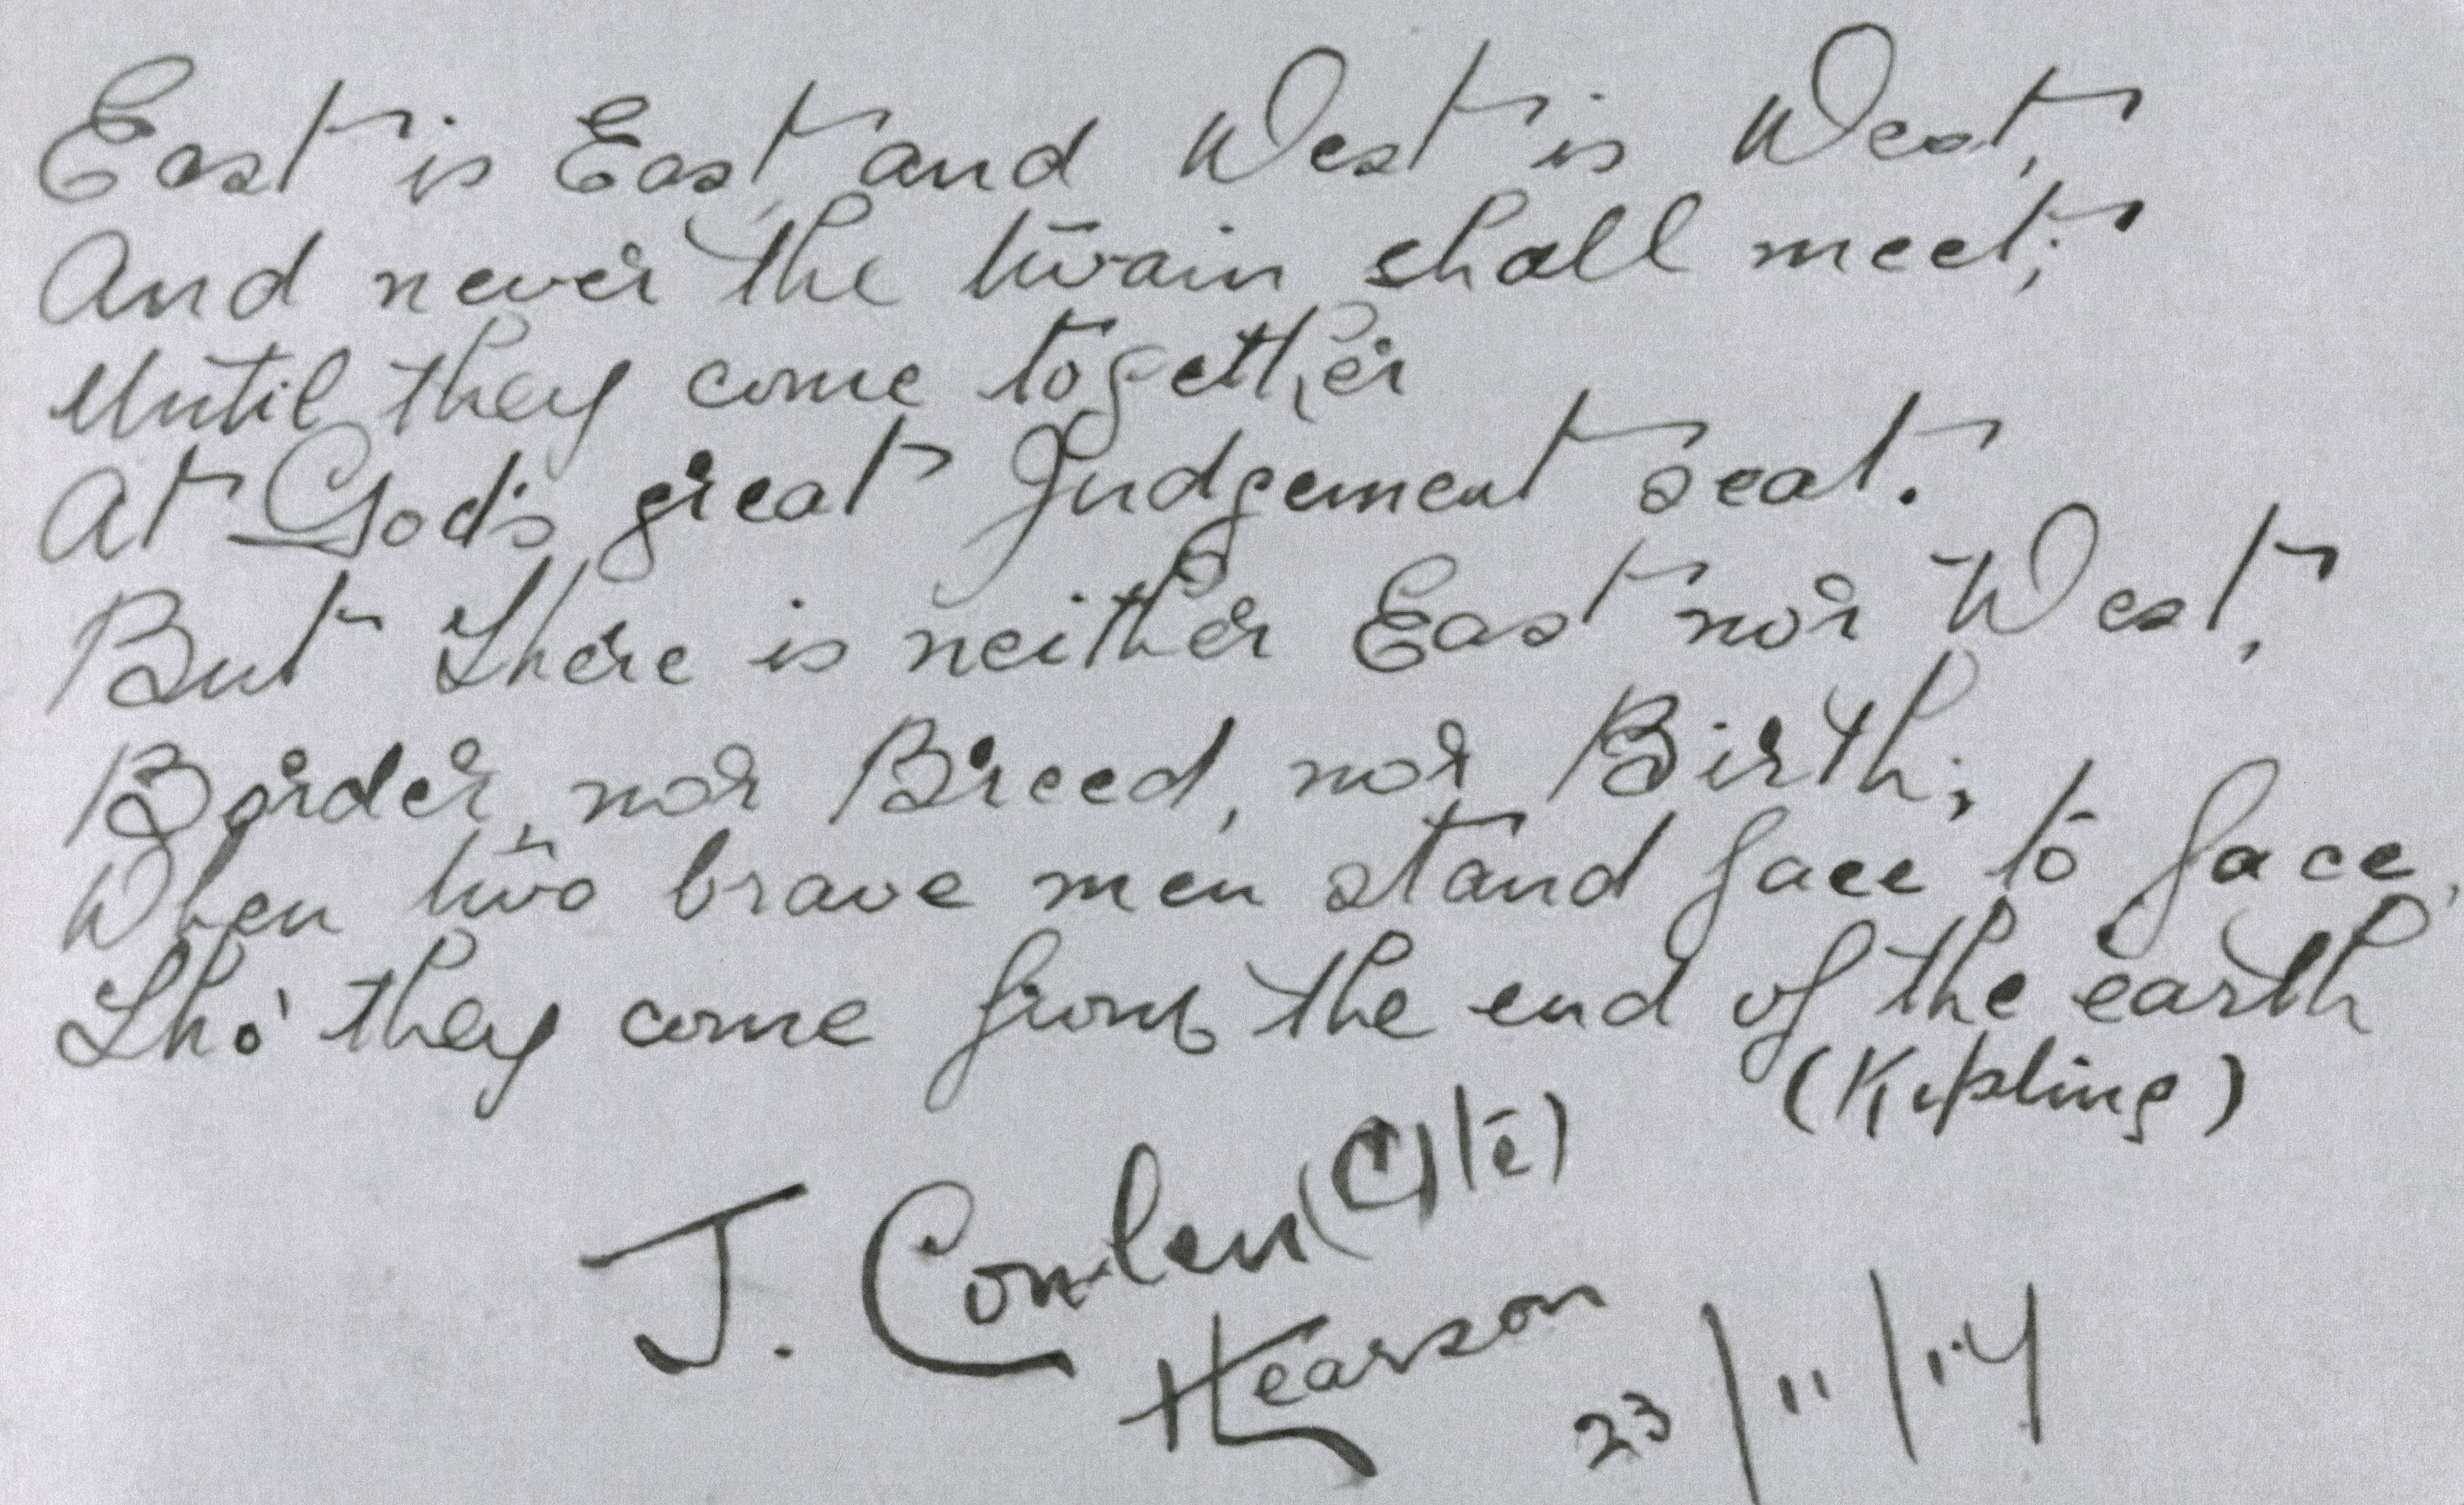 East is East, and West is West,
And never the twain shall meet;
Until they come together
At God's great Judgement seat.
But there is neither East nor West,
Border, nor Breed, nor Birth;
When two brave men stand face to face,
Tho' they come from the end of the earth
(Kipling)
J.
Hearson
23/11/14